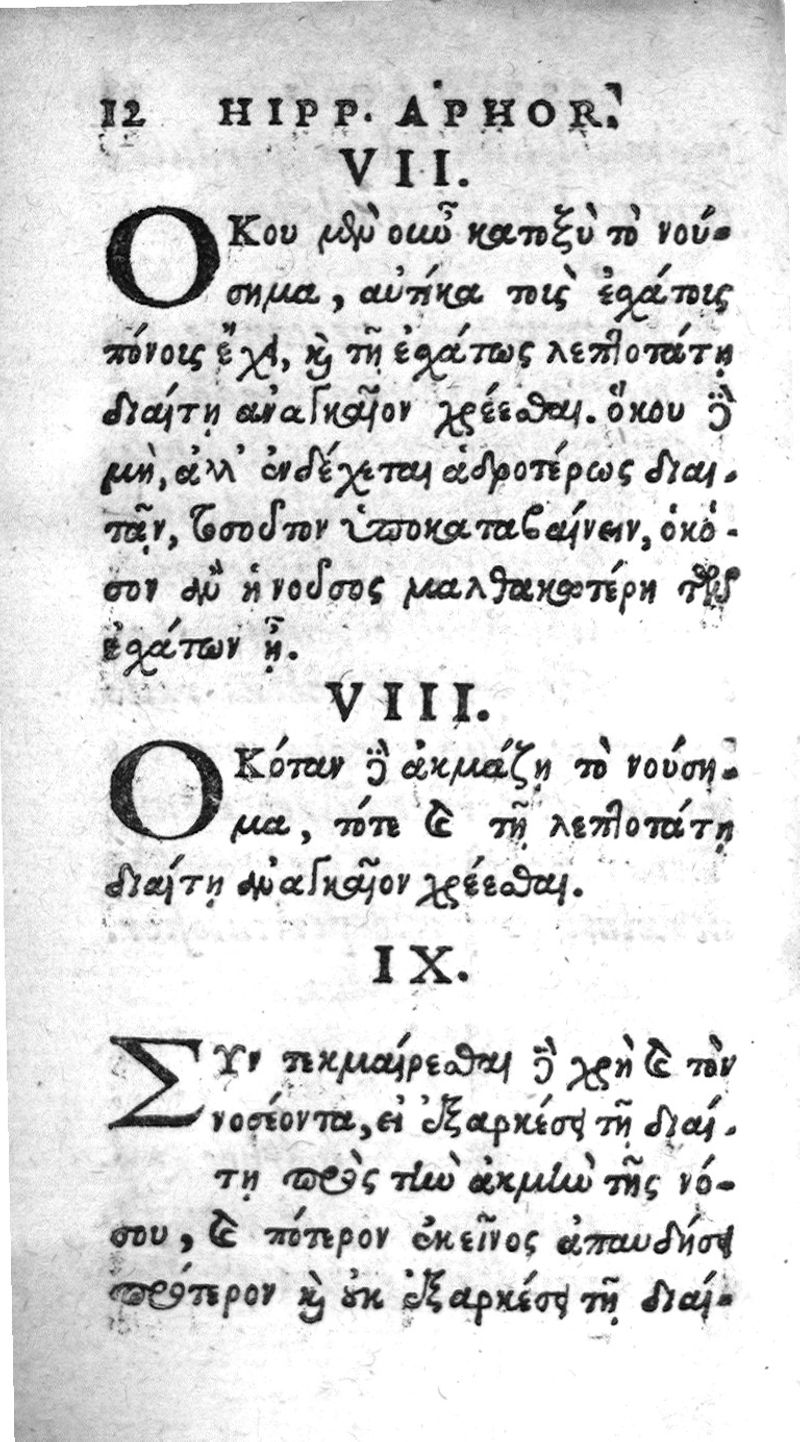 12 HIPP. APHOR.
VII.
ΟΚου μὲν οὖν κατοξὺ τὸ νού-
σημα, αὐτίκα τοὺς ἐσχάτους
πόνους ἔχει, καὶ τῇ ἐσχάτως λεπτοτάτῃ
διαίτῃ ἀναγκαῖον χρέεσθαι. ὅκου δὲ
μὴ, ἀλλ' ἐνδέχεται ἁδροτέρως διαι-
τᾷν, τοσοῦτον ὑποκαταβαίνειν, ὁκό-
σον ἂν ἡ νοῦσος μαλθακωτέρη τῶν
ἐσχάτων ᾖ.
VIII.
ΟΚόταν δὲ ἀκμάζῃ τὸ νούση-
μα, τότε καὶ τῇ λεπτοτάτῃ
διαίτῃ ἀναγκαῖον χρέεσθαι.
IX.
ΣΥν τεκμαίρεσθαι δὲ χρὴ καὶ τὸν
νοσέοντα, εἰ ἐξαρκέσει τῇ διαί-
τῃ πρὸς τὴν ἀκμὴν τῆς νό-
σου, καὶ πότερον ἐκεῖνος ἀπαυδήσει
πρότερον καὶ οὐκ ἐξαρκέσει τῇ διαί-